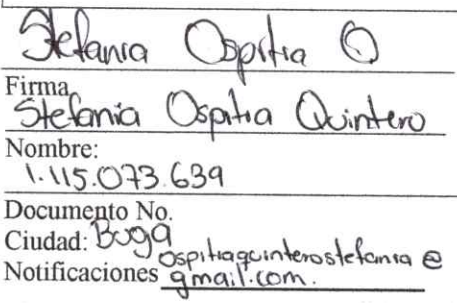 Stefania Ospitia Q
Firma
Stefania Ospitia Quintero
Nombre:
1.115.073.639
Documento No.
Ciudad: Buga
Notificaciones ospitiaquinterostefania@
gmail.com.